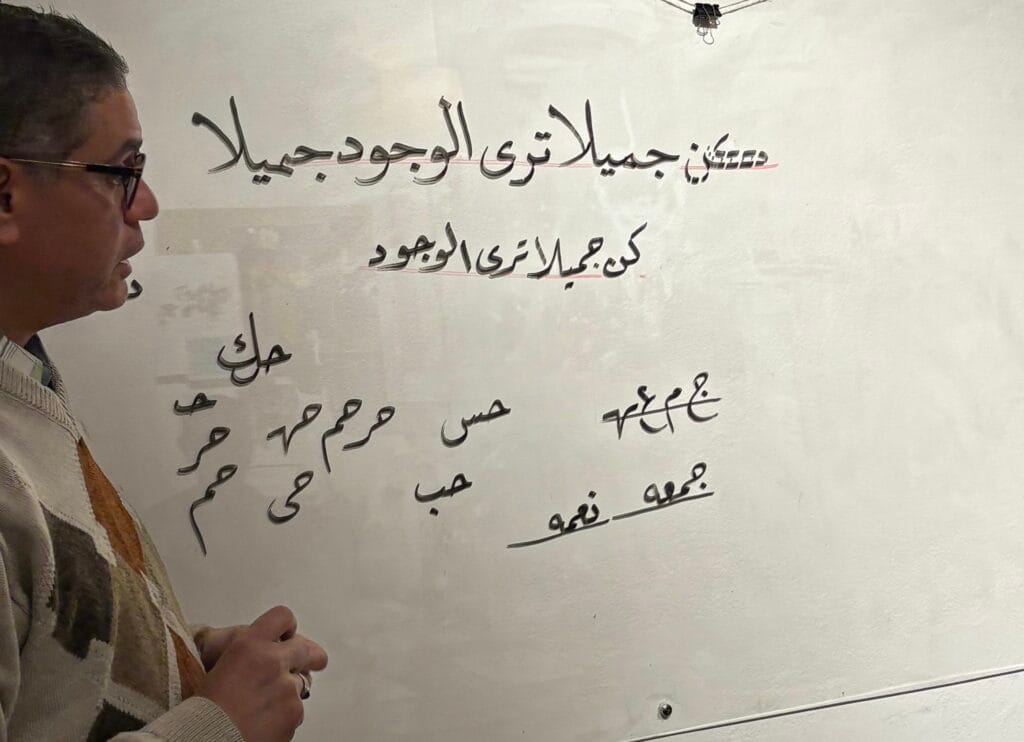 كن جميلا ترى الوجود جميلا
كن جميلا ترى الوجود
حك
ج م ع ه حس حر حم حه حـ
حر
جمعه حب حى حم
نعمه